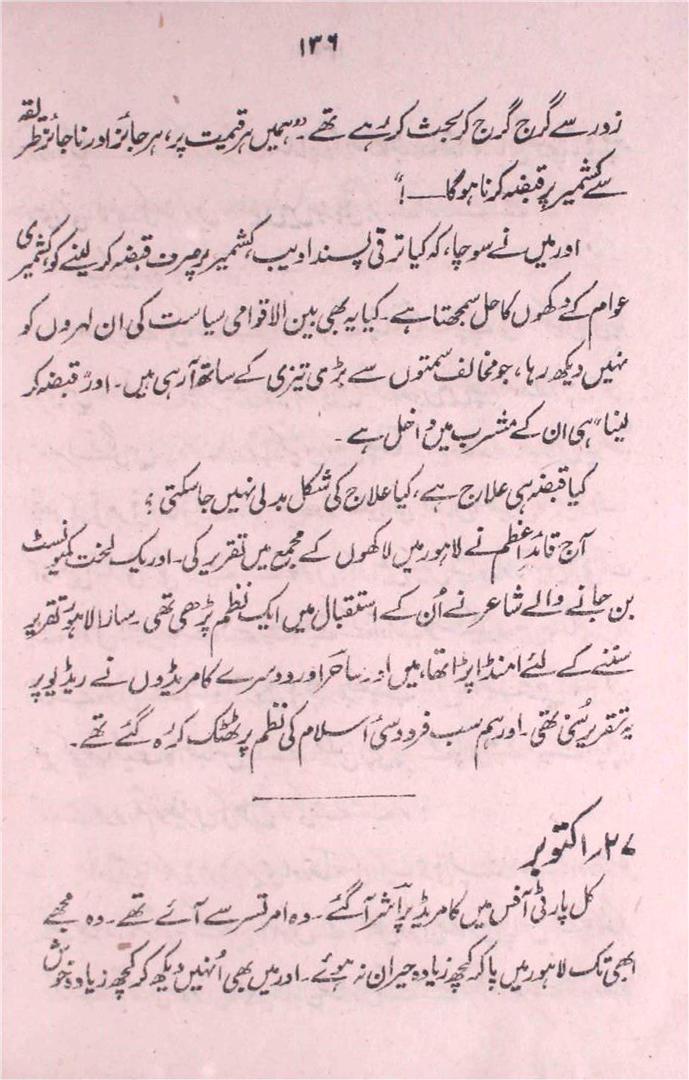 ۱۳۶
زور سے گرج گرج کر بحث کر رہے تھے۔ "ہمیں ہر قیمت پر، ہر جائز اور ناجائز طریقہ
سے کشمیر پر قبضہ کرنا ہوگا——!"
اور میں نے سوچا، کہ کیا ترقی پسند ادیب، کشمیر پر صرف قبضہ کر لینے کو، کشمیری
عوام کے دکھوں کا حل سمجھتا ہے۔ کیا یہ بھی بین الاقوامی سیاست کی ان لہروں کو
نہیں دیکھ رہا، جو مخالف سمتوں سے بڑی تیزی کے ساتھ آرہی ہیں۔ اور "قبضہ کر
لینا" ہی ان کے مشرب میں داخل ہے۔
کیا قبضہ ہی علاج ہے، کیا علاج کی شکل بدلی نہیں جا سکتی؟
آج قائدِ اعظم نے لاہور میں لاکھوں کے مجمع میں تقریر کی۔ اور یک لخت کمیونسٹ
بن جانے والے شاعر نے اُن کے استقبال میں ایک نظم پڑھی تھی۔ سارا لاہور تقریر
سننے کے لئے امنڈا پڑا تھا، میں اور ساحر اور دوسرے کامریڈوں نے ریڈیو پر
یہ تقریر سُنی تھی۔ اور ہم سب فردوسیٔ اسلام کی نظم پر ٹھٹک کر رہ گئے تھے۔
۲۷ر اکتوبر
کل پارٹی آفس میں کامریڈ پراشر آگئے۔ وہ امرتسر سے آئے تھے۔ وہ مجھے
ابھی تک لاہور میں پا کر کچھ زیادہ حیران نہ ہوئے۔ اور میں بھی اُنہیں دیکھ کر کچھ زیادہ خوش